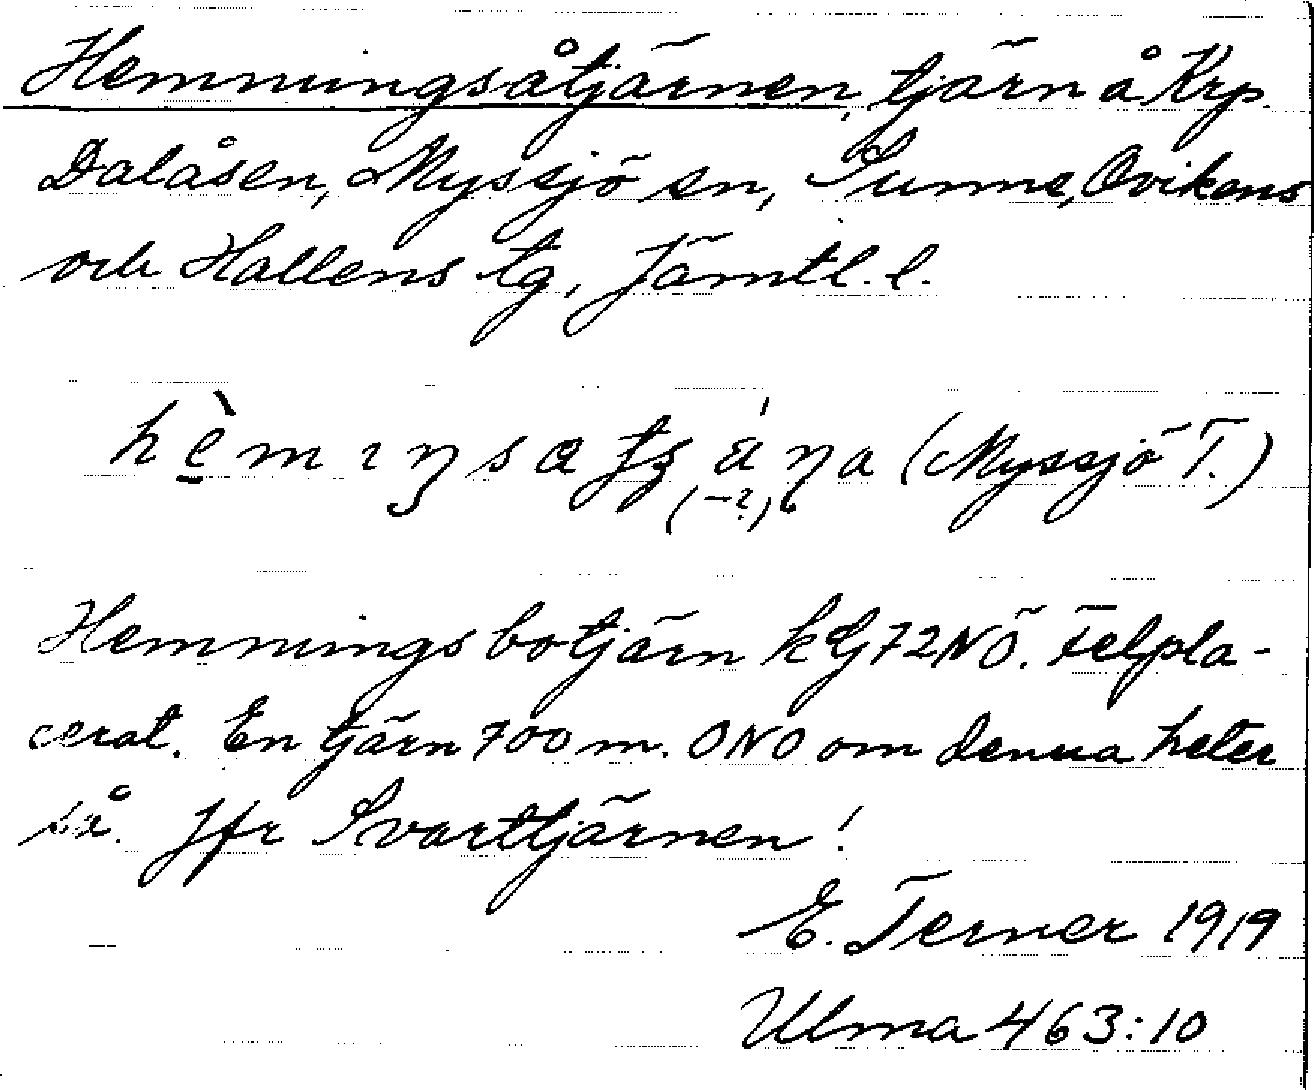 Hemningsåtjärnen, tjärn å Krp.
Dalåsen, Myssjö sn, Sunne, Ovikens
och Hallens tg, Jämtl. l.
hèmıŋsatʂáṇa (Myssjö T.)
(–?)
Hemningsbotjärn kG72NÖ. Felpla-
cerat. En tjärn 700 m. ONO om denna heter
så. Jfr Svarttjärnen!
E. Terner 1919
Ulma 463:10